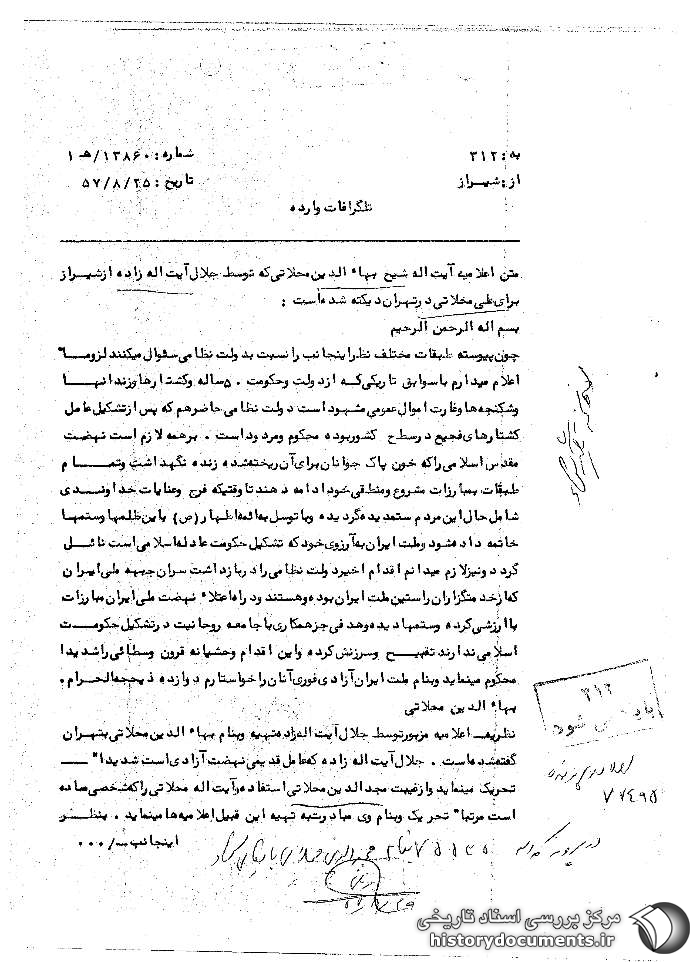 به : ۳۱۲
شماره : ۱۳۸۶۰/هـ ۱
از : شیراز
تاریخ : ۵۷/۸/۲۵
تلگرافات وارده
متن اعلامیه آیت اله شیخ بهاء الدین محلاتی که توسط جلال آیت اله زاده از شیراز
برای علی محلاتی در تهران دیکته شده است :
بسم اله الرحمن الرحیم
چون پیوسته طبقات مختلف نظر اینجانب را نسبت به دولت نظامی سئوال میکنند لزوما"
اعلام میدارم با سوابق تاریکی که از دولت و حکومت ۵۰ ساله و کشتارها و زندانها
و شکنجه‌ها و غارت اموال عمومی مشهود است دولت نظامی حاضر هم که پس از تشکیل عامل
کشتارهای فجیع در سطح کشور بوده محکوم و مردود است . بر همه لازم است نهضت
مقدس اسلامی را که خون پاک جوانان برای آن ریخته شده زنده نگهداشت و تمام
طبقات به مبارزات مشروع و منطقی خود ادامه دهند تا وقتیکه فرج و عنایات خداوندی
شامل حال این مردم ستمدیده گردیده و با توسل به ائمه اطهار (ص) باین ظلمها و ستمها
خاتمه داده شود و ملت ایران به آرزوی خود که تشکیل حکومت عادله اسلامی است نائل
گردد و نیز لازم میدانم اقدام اخیر دولت نظامی را در بازداشت سران جبهه ملی ایران
که از خدمتگزاران راستین ملت ایران بوده و هستند و در راه اعتلاء نهضت ملی ایران مبارزات
با ارزشی کرده و ستمها دیده و هدفی جز همکاری با جامعه روحانیت در تشکیل حکومت
اسلامی ندارند تقبیح و سرزنش کرده و این اقدام وحشیانه قرون وسطائی را شدیدا
محکوم مینماید و بنام ملت ایران آزادی فوری آنان را خواستارم دوازده ذیحجه الحرام .
بهاء الدین محلاتی
نظریه اعلامیه مزبور توسط جلال آیت اله زاده تهیه و بنام بهاء الدین محلاتی بتهران
گفته شده است . جلال آیت اله زاده که عامل قدیمی نهضت آزادی است شدیدا"
تحریک مینماید و از غیبت مجدالدین محلاتی استفاده و آیت اله محلاتی را که شخصی ساده
است مرتبا" تحریک و بنام وی مبادرت به تهیه این قبیل اعلامیه‌ها مینماید . بنظر
اینجانب
۳۱۲
بایگانی شود
در پرونده
مرکز بررسی اسناد تاریخی
historydocuments.ir